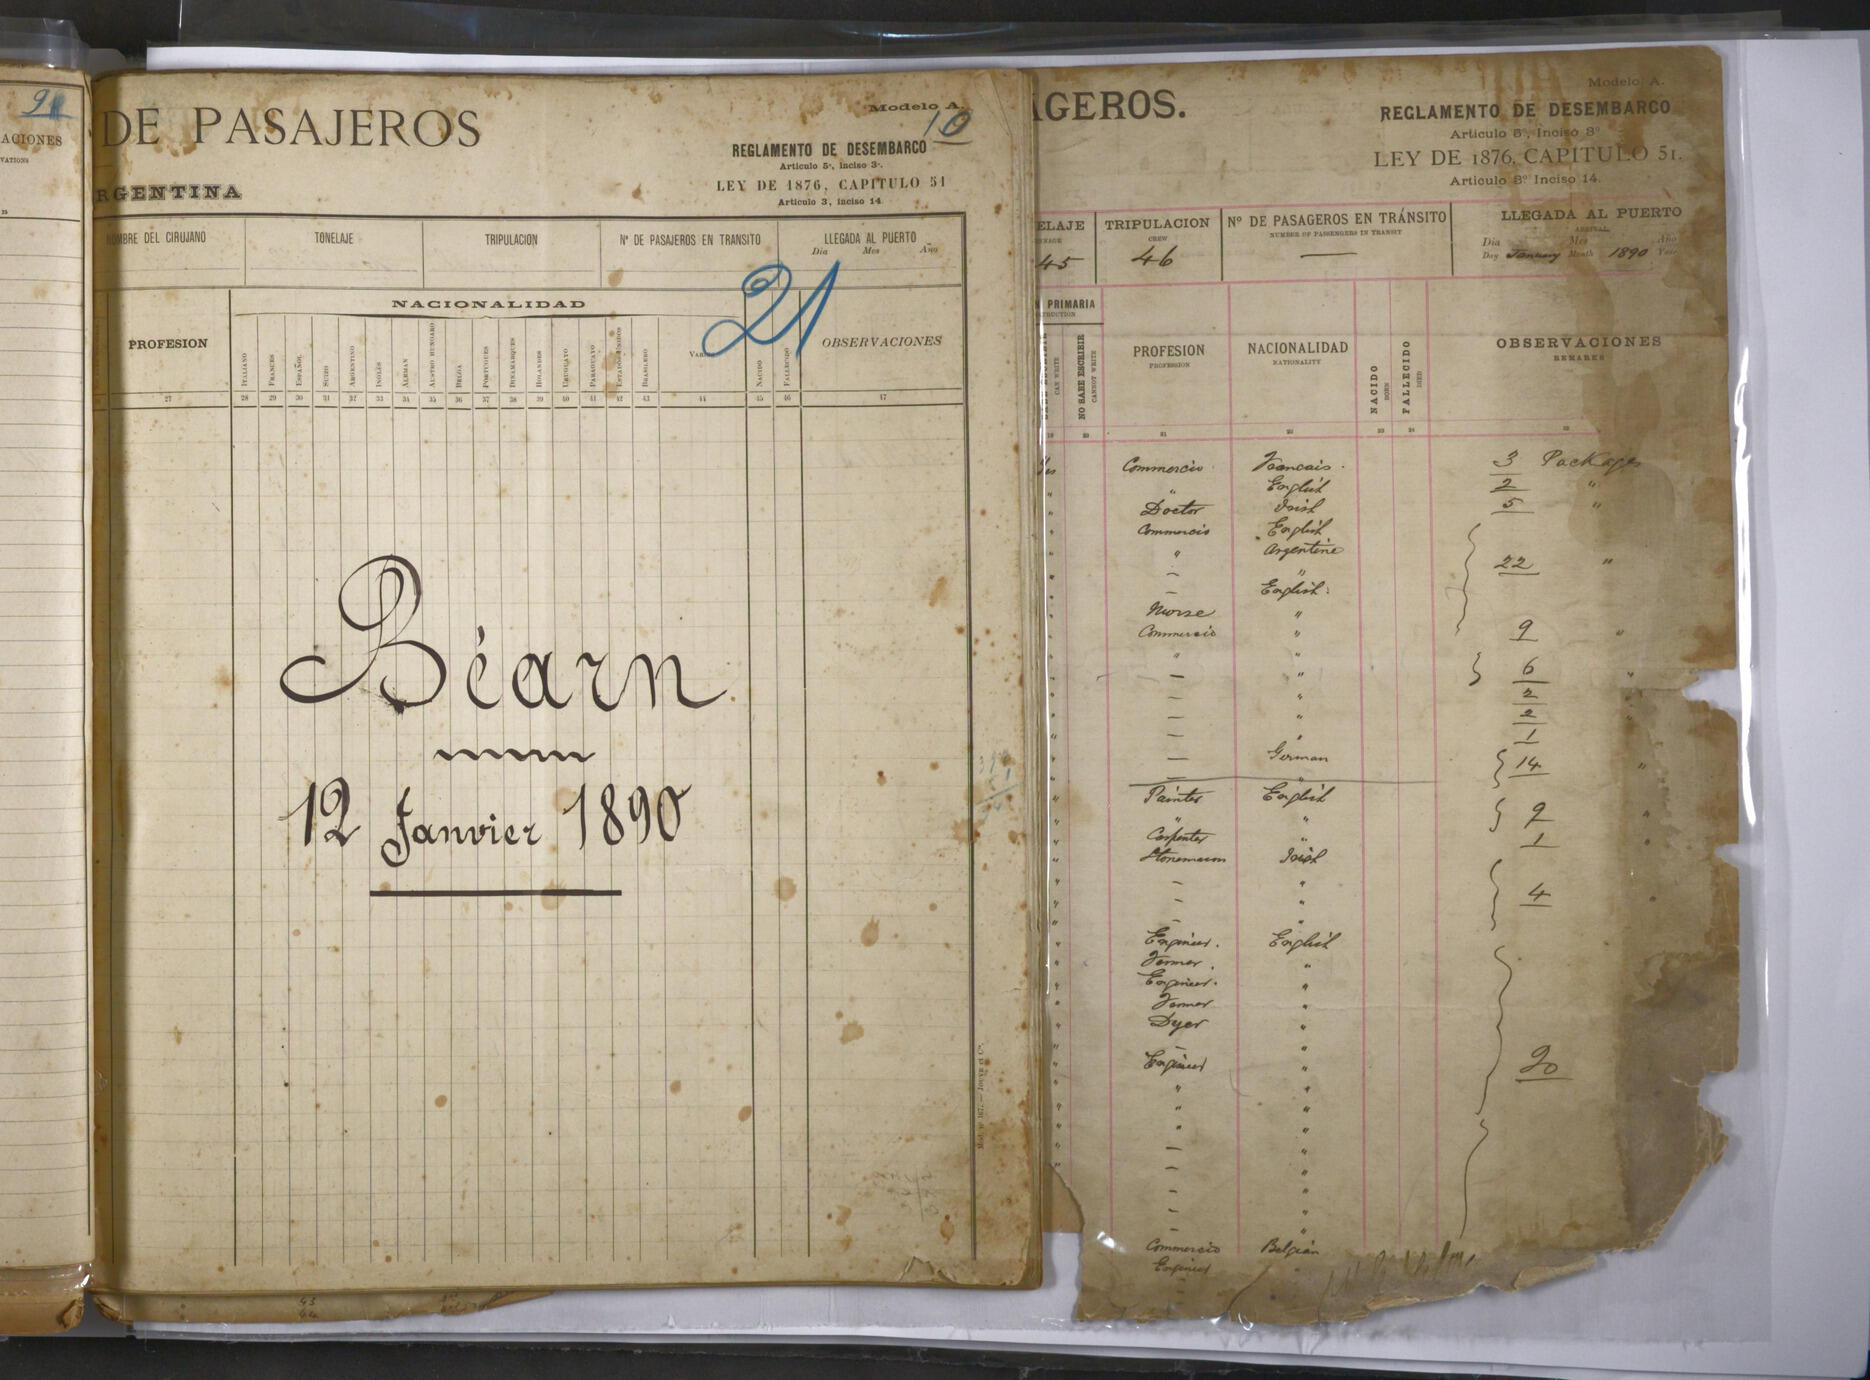 9
ACIONES
VATIONS
25
DE PASAJEROS
Modelo A.
10
REGLAMENTO DE DESEMBARCO
Artículo 5º, inciso 3º.
LEY DE 1876, CAPITULO 51
Artículo 3, inciso 14
RGENTINA
NOMBRE DEL CIRUJANO TONELAJE TRIPULACION Nº DE PASAJEROS EN TRANSITO LLEGADA AL PUERTO
Dia Mes Año
21
NACIONALIDAD
PROFESION ITALIANO FRANCES ESPAÑOL SUIZO ARGENTINO INGLÉS ALEMAN AUSTRO HUNGARO BELGA PORTUGUES DINAMARQUES HOLANDES URUGUAYO PARAGUAYO ESTADOS-UNIDOS BRASILERO VARIOS NACIDO FALLECIDO OBSERVACIONES
27 28 29 30 31 32 33 34 35 36 37 38 39 40 41 42 43 44 45 46 47
Béarn
12 Janvier 1890
AGEROS.
Modelo A.
REGLAMENTO DE DESEMBARCO
Articulo 5º, Inciso 8º
LEY DE 1876, CAPITULO 51.
Articulo 3º Inciso 14.
ELAJE TRIPULACION Nº DE PASAGEROS EN TRÁNSITO LLEGADA AL PUERTO
NNAGE CREW NUMBER OF PASSENGERS IN TRANSIT ARRIVAL
Dia Mes Año
45 46 — Day January Month 1890 Year
N PRIMARIA
STRUCTION
SABE ESCRIBIR CAN WRITE
NO SABE ESCRIBIR CANNOT WRITE
PROFESION NACIONALIDAD NACIDO FALLECIDO OBSERVACIONES
PROFESSION NATIONALITY BORN DIED REMARKS
19 20 21 22 23 24 25
Yes Commercio Francais. 3 Packages
" " English 2 "
" Doctor Irish 5 "
" Commercio English
" " Argentine
" — " 22 "
" — English.
" Nurse "
" Commercio " 9 "
" " "
" — " 6 "
" — " 2
" — " 2 "
" — " 1
— German 14 "
— "
" Painter English
" " " 9 "
" Carpenter " 1 "
" Stonemason Irish
" — "
" — " 4 "
" — "
" Engineer. English
" Farmer. "
" Engineer. "
" Farmer "
" Dyer "
" — "
" Engineer " 20
" " "
" " "
" " "
" — "
" — "
— "
— "
—
Commercio Belgian
Engineer "